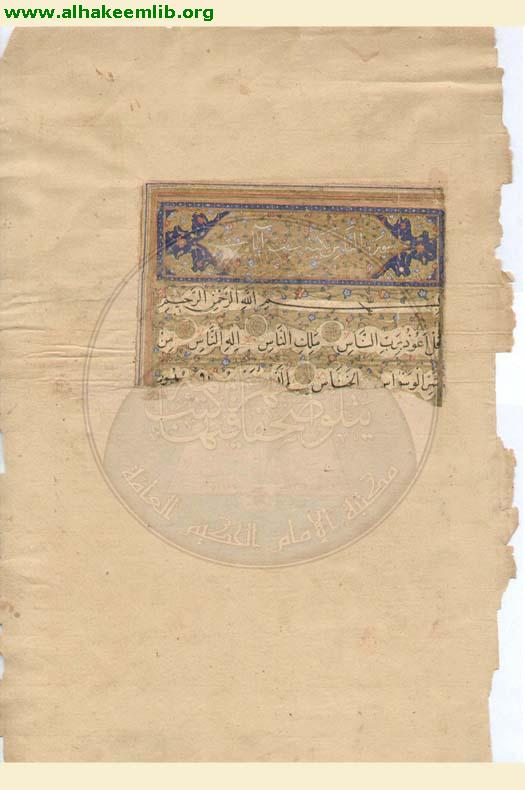 www.alhakeemlib.org
سورة الناس ست آيات
بسم الله الرحمن الرحيم
قل أعوذ برب الناس ملك الناس إله الناس من
شر الوسواس الخناس
يتلو صحفا مطهرة فيها كتب
مكتبة الإمام الحكيم العامة